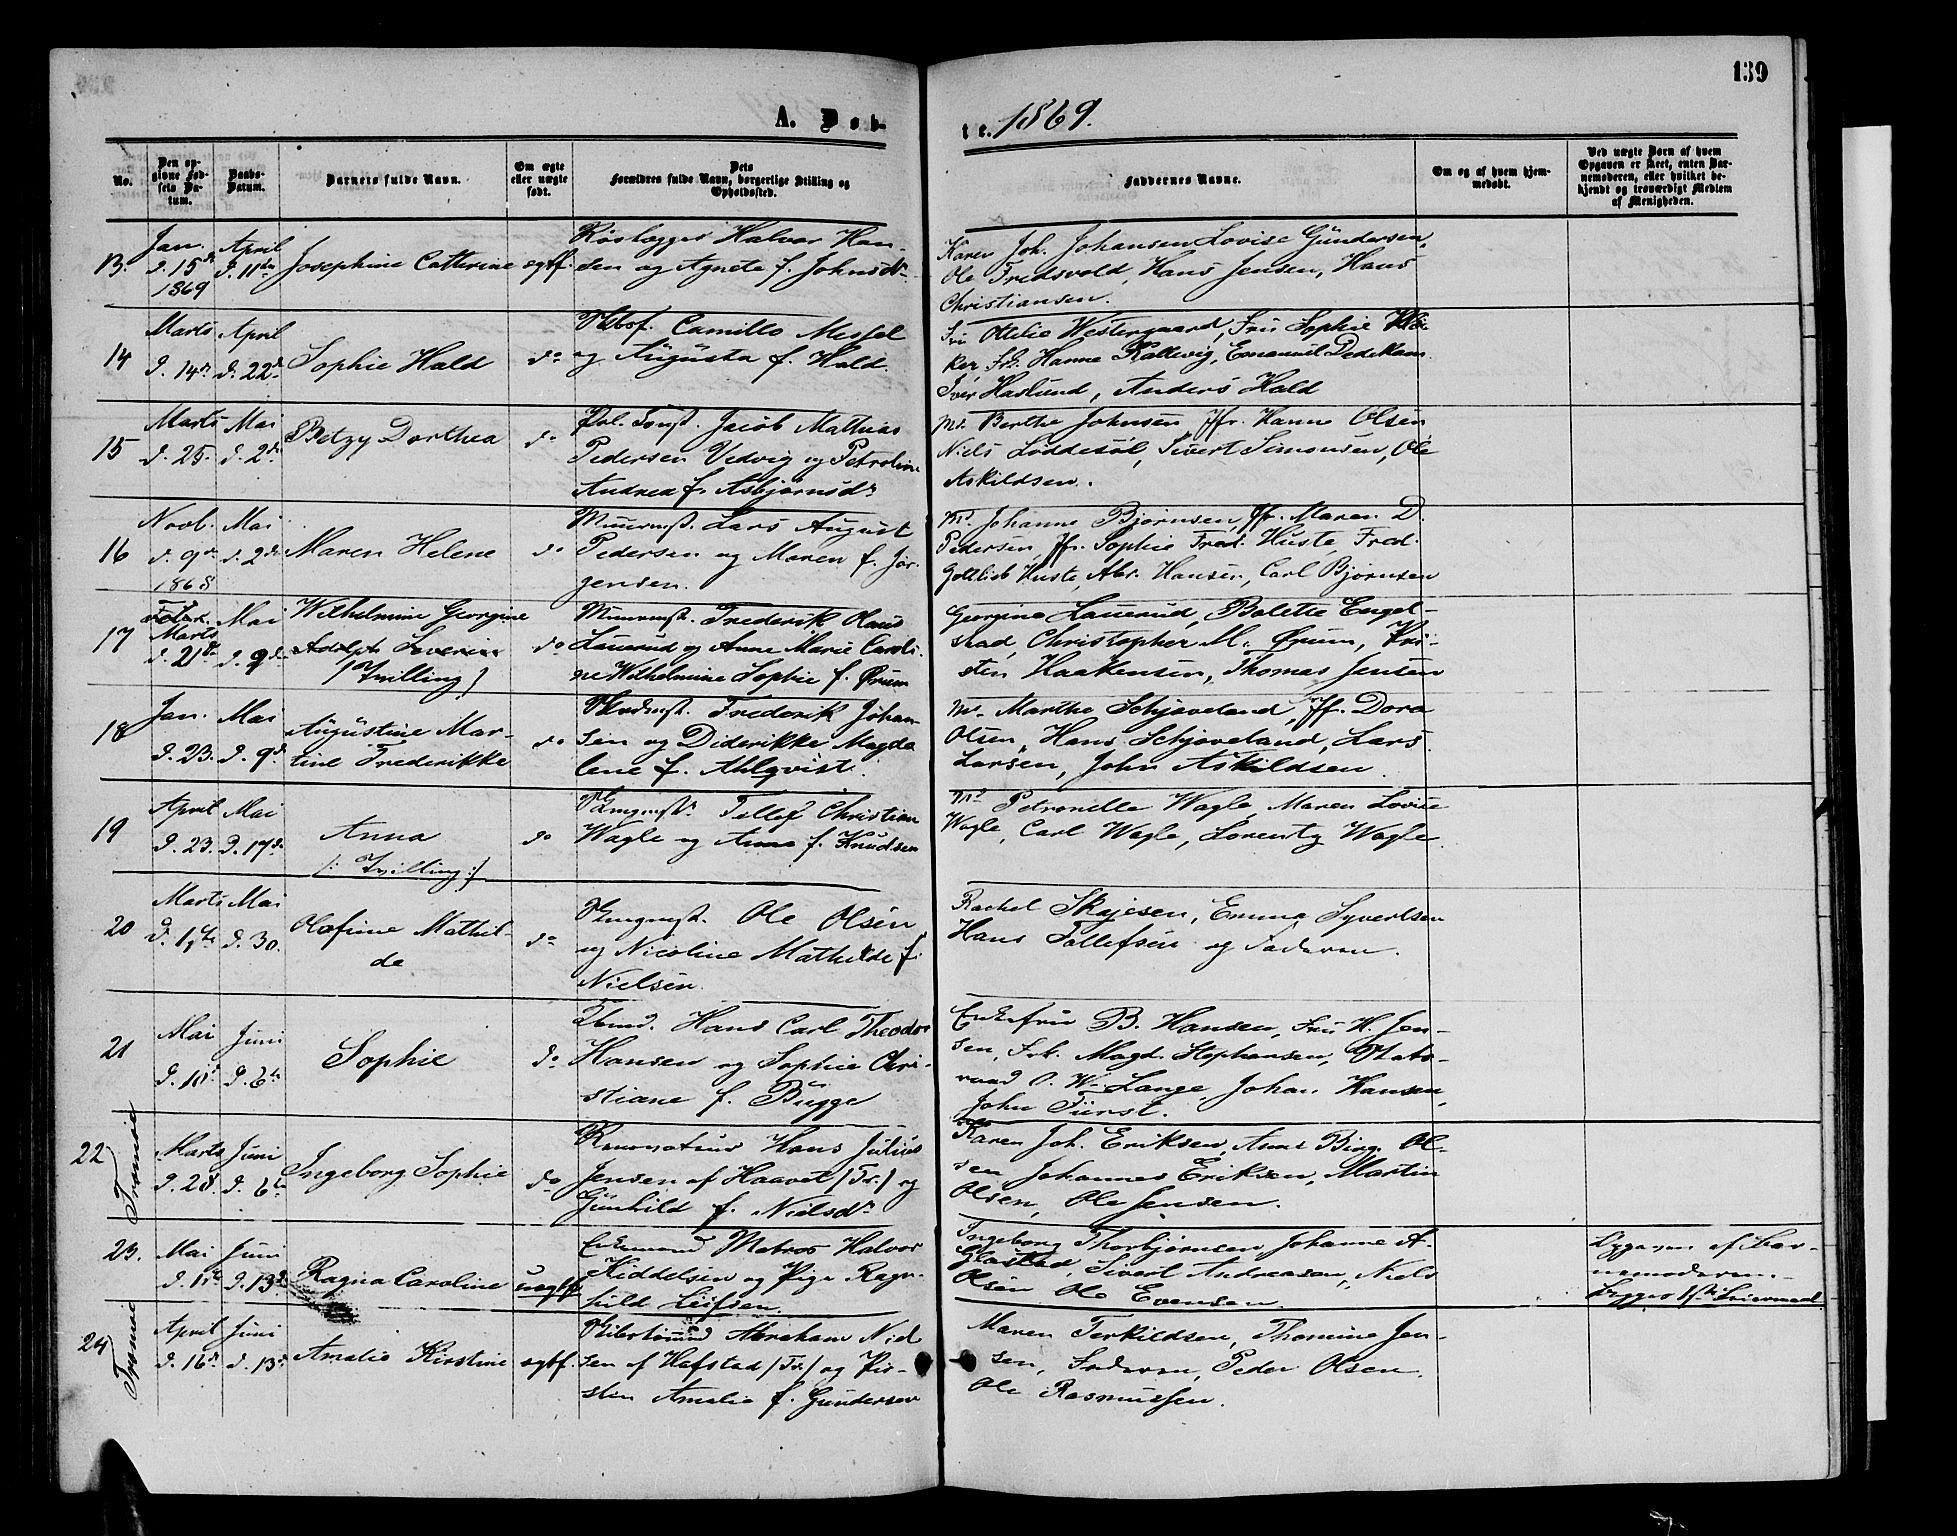 139
A. Døb-
te. 1869.
No.
Den op-
givne Fød-
sels Da-
tum.
Daabs-
Datum.
Barnets fulde Navn.
Om ægte
eller uægte
født.
Dets
Forældres fulde Navn, borgerlige Stilling og
Opholdssted.
Faddernes Navne.
Om og af hvem hjem-
medøbt.
Ved uægte Børn af hvem
Opgaven er skeet, enten Bar-
nemoderen, eller hvilket be-
kjendt og troværdigt Medlem
af Menigheden.
13.
Jan.
d. 15de
1869
April
d. 11te
Josephine Catherine
egtf.
Halvor Han-
sen og Agnete f. Johnsdr
Karen Joh. Johansen Lovise Gundersen,
Ole Fredsvold, Hans Jensen, Hans
Christiansen.
14
Marts
d. 14de
April
d. 22de
Sophie Hald
do
Camillo Missel
og Augusta f. Hald.
Fru Ottilie Westergaard, Fru Sophie
Hanne Kallevig, Emanuel Dedekam
Iver Haslund, Anders Hald
15
Marts
d. 25.
Mai
d. 2de
Betzy Dorthea
do
Jacob Mathias
Pedersen Vedvig og Petroline
Andrea f. Asbjørnsdr
M. Berthe Johnsen Jfr. Hanne Olsen
Niels Løddesøl, Sivert Simonsen, Ole
Askildsen.
16
Novb.
d. 9de
1868
Mai
d. 2de
Maren Helene
do
Muurmst. Lars August
Pedersen og Maren f. Jør-
gensen.
M. Johanne Bjørnsen, Jfr. Maren D.
Pedersen Jfr. Sophie Fred. Huste, Fred.
Gottlieb Huste, Abr. Hansen, Carl Bjørnsen
17
Marts
d. 21de
Mai
d. 9de
Wilhelmine Georgine
Adolph Severin
/Tvilling/
do
Muurmst. Frederik Olaus
Lauerud og Anne Marie Caroli-
ne Wilhelmine Sophie f. Ørum
Georgine Lauerud, Bolette Engel-
stad, Christopher M. Ørum, Kri-
sten Haakensen, Thomas Jensen
18
Jan.
d. 23.
Mai
d. 9de
Augustine Mar-
tine Frederikke
do
Frederik Johan-
sen og Diderikke Magda
lene f. Ahlqvist.
M. Marthe Schjøveland, Jfr. Dora
Olsen, Hans Schjøveland, Lars
Larsen, John Askildsen.
19
April
d. 23.
Mai
d. 17de
Anna
/: Tvilling :/
do
Tellef Christian
Wagle og Anna f. Knudsen
Md Petronelle Wagle, Maren Lovise
Wagle, Carl Wagle, Lorentz Wagle.
20
Marts
Mai
d. 30.
Olafine Mathil-
de
do
Ole Olsen
og Nicoline Mathilde f.
Nielsen.
Rachel Skajesen, Emma Syvertsen
Hans Tallefsen og Faderen.
21
Mai
Juni
d. 6te
Sophie
do
Hans Carl Theodor
Hansen og Sophie Chri-
stiane f. Bugge
Enkefru B. Hansen, Fru H. Jen-
sen, Frk. Magd. Stephansen, Stats-
raad O. W. Lange, Johan Hansen,
John Fürst.
22
Tromøe
Marts
d. 28.
Juni
d. 6te
Ingeborg Sophie
do
Hans Julius
Jensen af Haavet /Tr./ og
Gunhild f. Nielsdr
Karen Joh. Eriksen, Anne Birg. Ol-
sen Johannes Eriksen, Martin
Olsen, Ole Jensen.
23.
Mai
Juni
d. 13de
Ragna Caroline
uegtf
Enkemand Matros Halvor
Kiddelsen og Pige Ragn-
hild Leifsen.
Ingeborg Thorbjørnsen Johanne A.
Glastad, Sivert Andreasen, Niels
Olsen Ole Evensen.
Opgaven af Bar-
nemoderen.
Begges 1ste Leiermaal
24
Tromøe
April
d. 16de
Juni
d. 13de
Amalie Kirstine
egtf.
Abraham Niel
sen af Hafstad /Tr./ og Kir-
sten Amalie f. Gundersen
Maren Terkildsen, Thomine Jen-
sen, Faderen, Peder Olsen,
Ole Rasmussen.